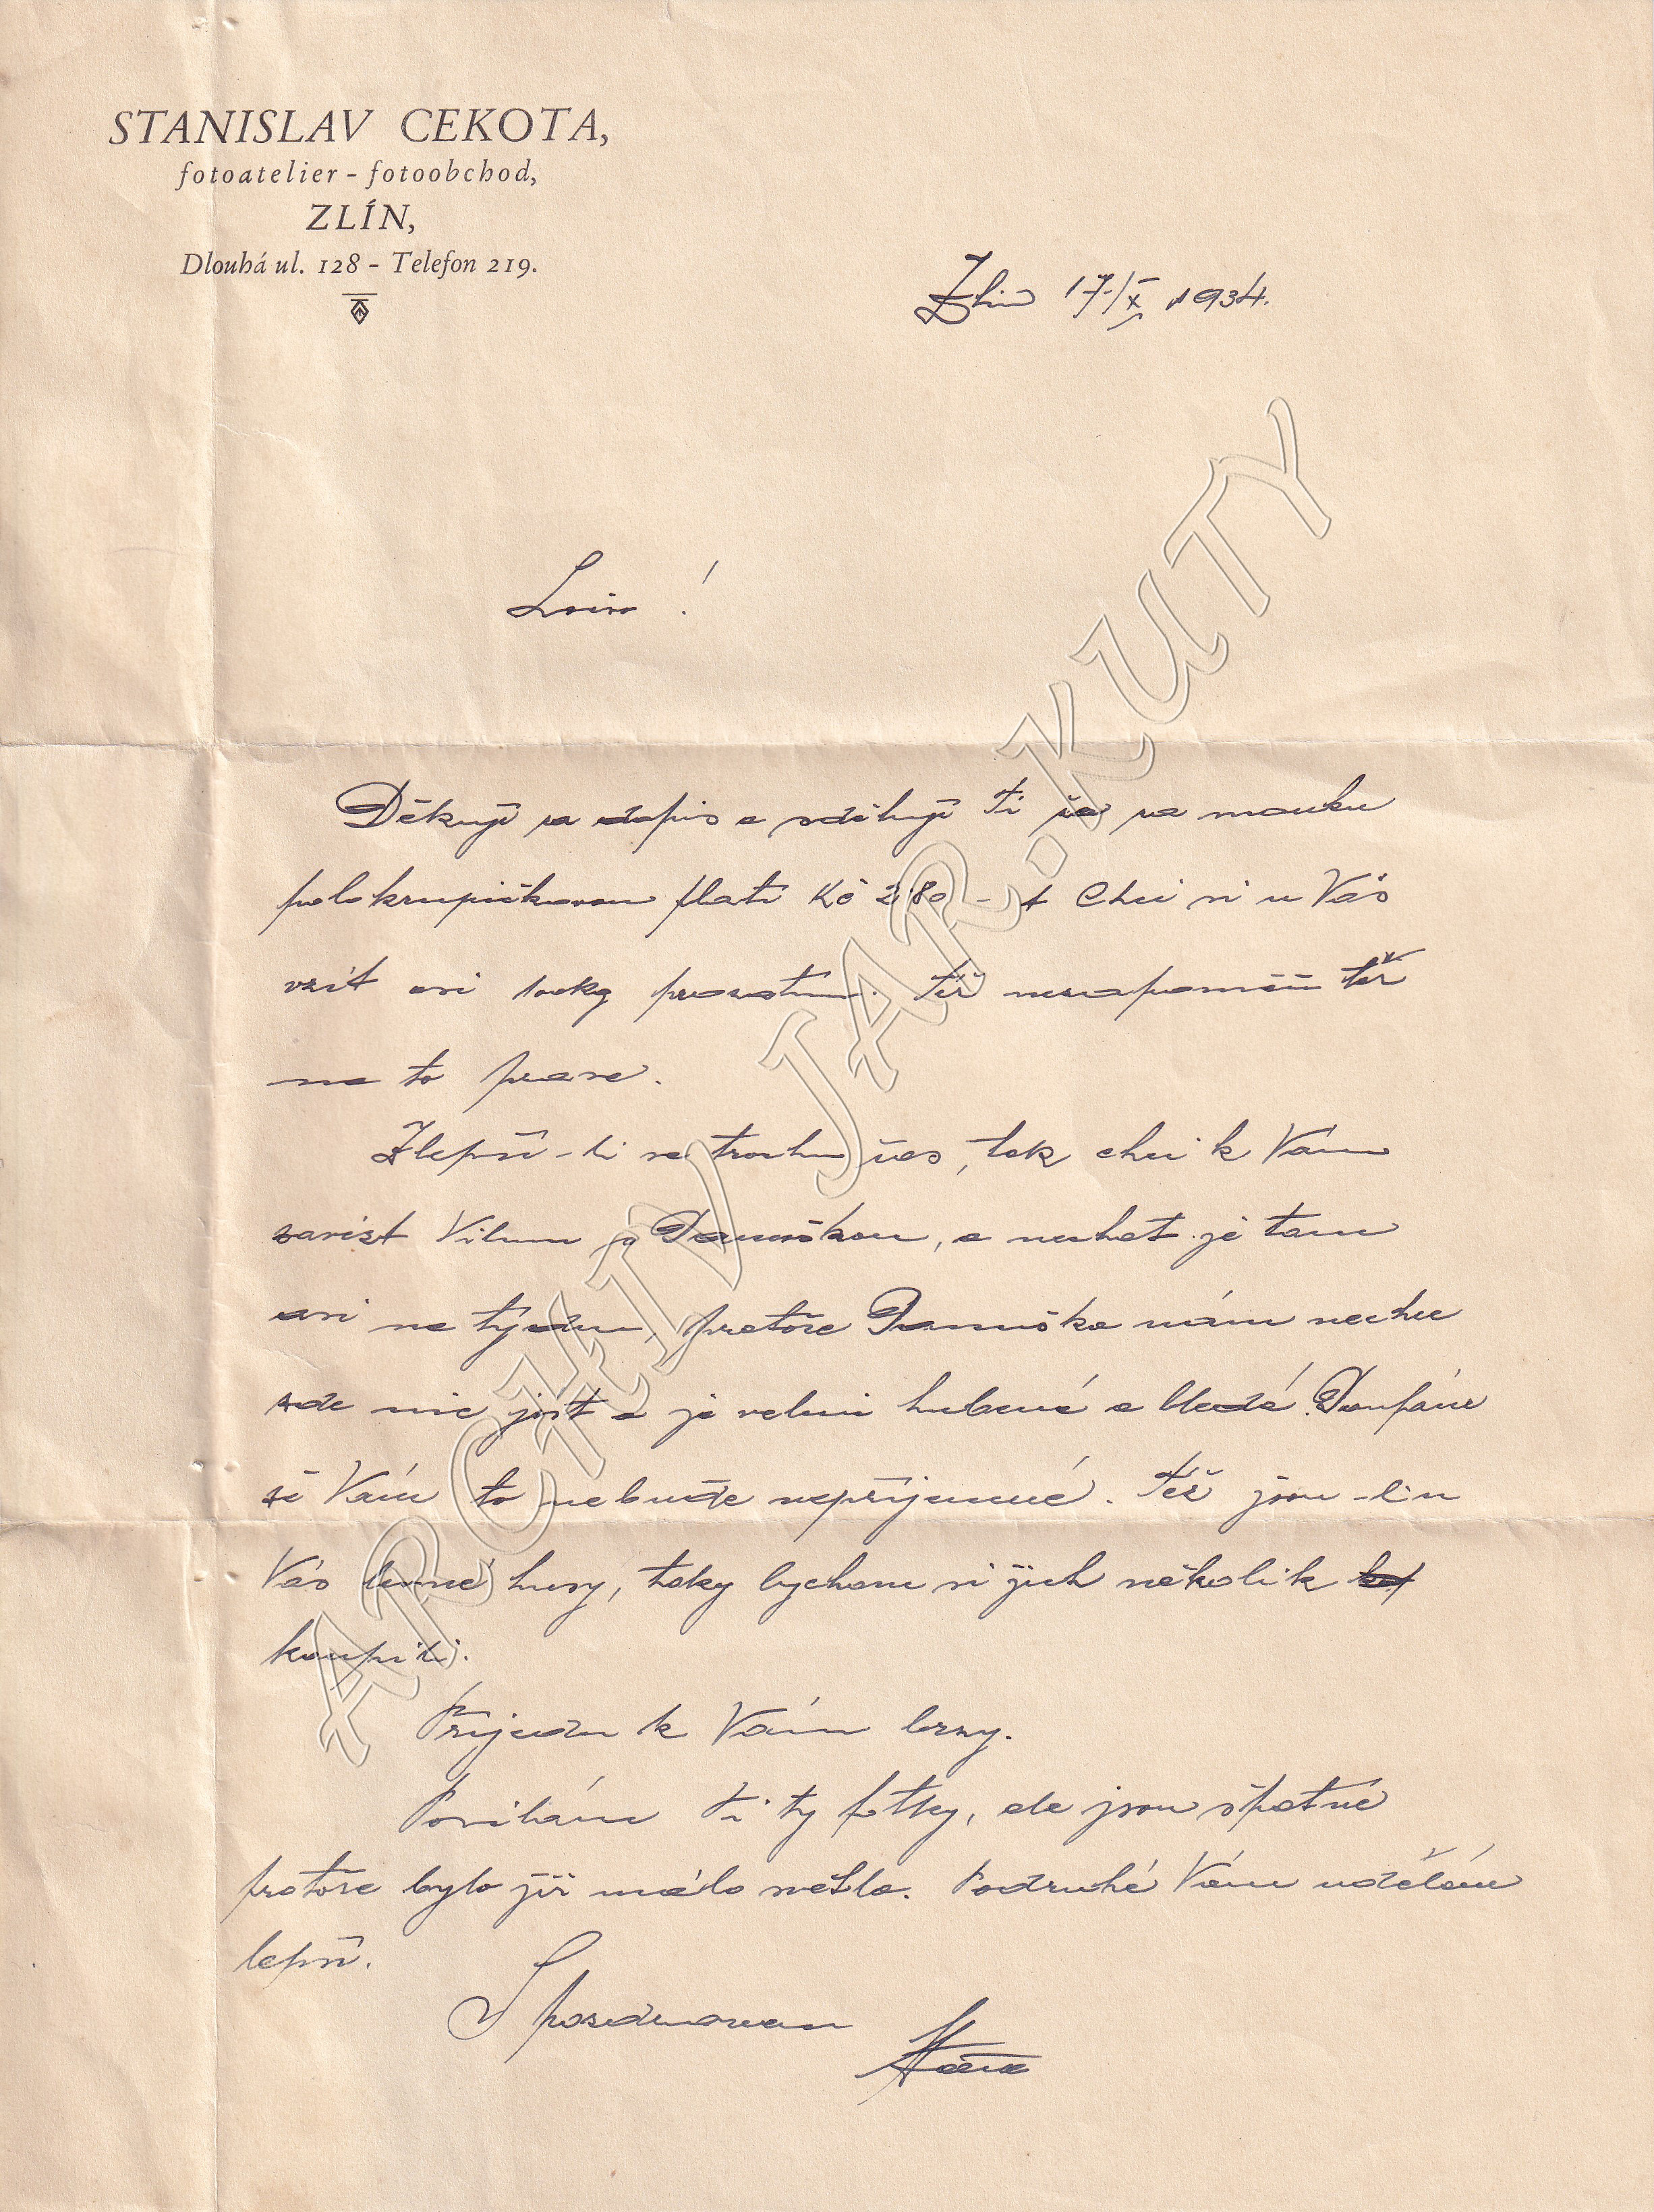 STANISLAV CEKOTA,
fotoatelier - fotoobchod,
ZLÍN,
Dlouhá ul. 128 - Telefon 219.
Zlín 17/X 1934.
!
Děkuji za dopis a sděluji Ti že za mouku
polokrupičkovou platí Kč 280 - Chci si u Vás
vzít asi prozatím. Též nezapomeň též
na to prase.
Zlepší-li se trochu čas, tak chci k Vám
zavézt Vilmu s Danuškou, a nechat je tam
asi na týden, protože Danuška nám nechce
zde nic jíst a je velmi hubená a bledá. Doufám
že Vám to nebude nepříjemné. Též jsou-li u
Vás levné husy, taky bychom si jich několik
koupili.
Přijedu k Vám brzy.
Posílám Ti ty fotky, ale jsou špatné
protože bylo již málo světla. Podruhé Vám udělám
lepší.
S pozdravem
Stáňa
ARCHIV JAR. KUTY